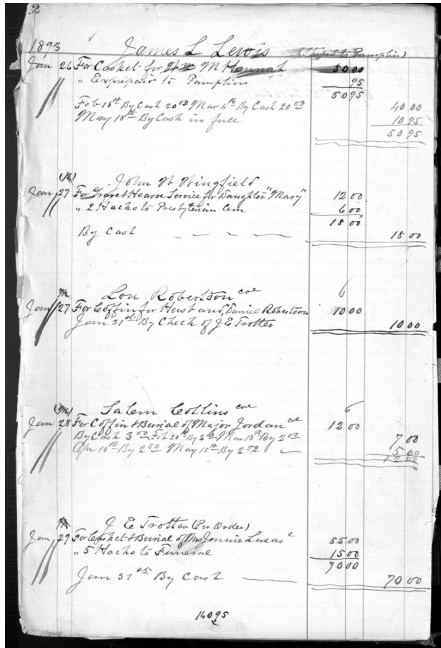 2
1893 James L Lewis (Shipt to Pamplin)
Jan 26 For Casket for M Hannah 50 00
" Ex to Pamplin 95
50 95
Feb 18th By Cash 20 00 Mar 4th By Cash 20 00 40 00
May 18th By Cash in full 10 95
50 95
John W Wingfield
Jan 27 For Grave & Hearse Service for Daughter "Mary" 12 00
" 2 Hacks to Presbyterian Cem 6 00
18 00
By Cash 18 00
Lou Robertson col 6
Jan 27 For Coffin for Husband, Daniel Robertson 10 00
Jan 31st By Check of J E Trotter 10 00
Salem Collins col 6
Jan 28 For Coffin & Burial of Major Jordan col 12 00
By Cash 3 00 Feb 20th By 2 00 Mar 18th By 2 00 7 00
Apr 18th By 2 50 May 18th By 2 50 5 00
12 00
J. E Trotter (Per Order)
Jan 27 For Casket & Burial of Mrs Jennie Lucas 55 00
" 5 Hacks to Funeral 15 00
70 00
Jan 31st By Cash 70 00
160 95